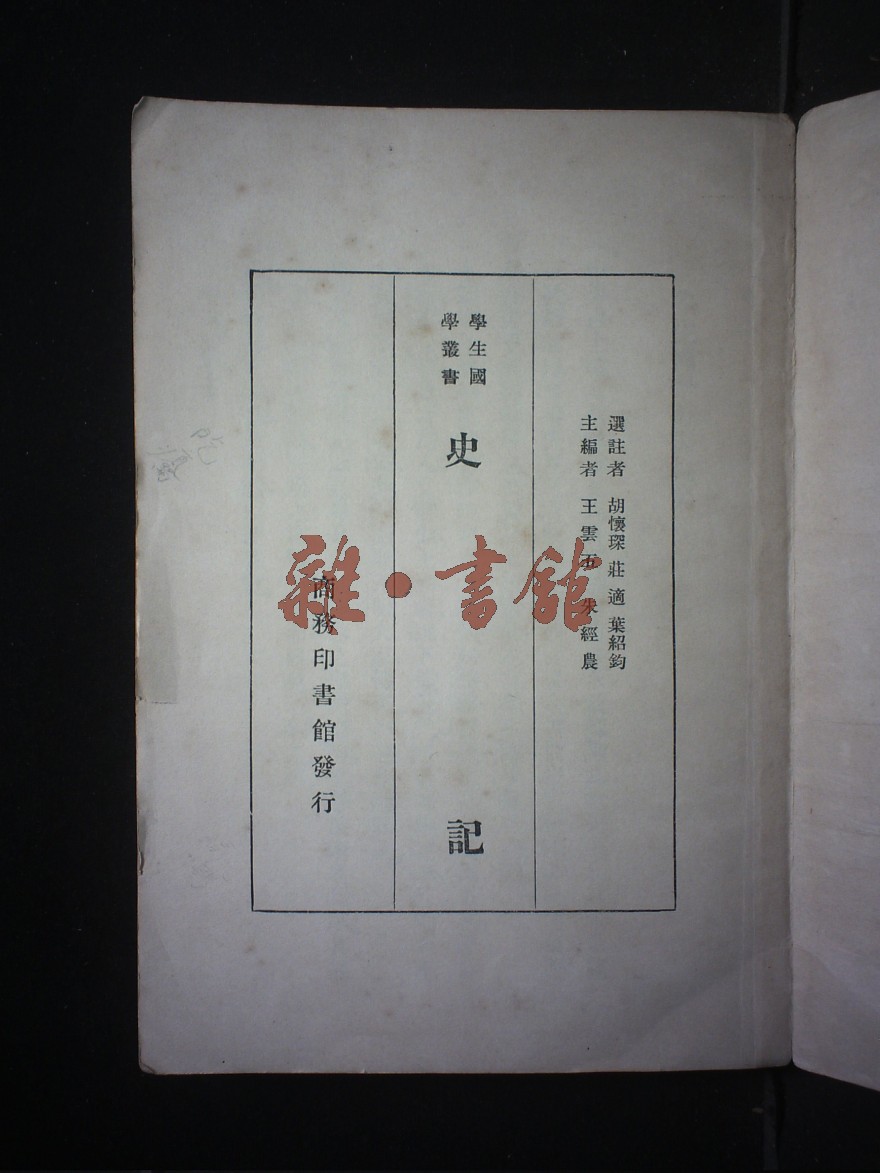 選註者 胡懷琛 莊適 葉紹鈞
主編者 王雲五 朱經農
學生國
學叢書
史記
商務印書館發行
雜·書館